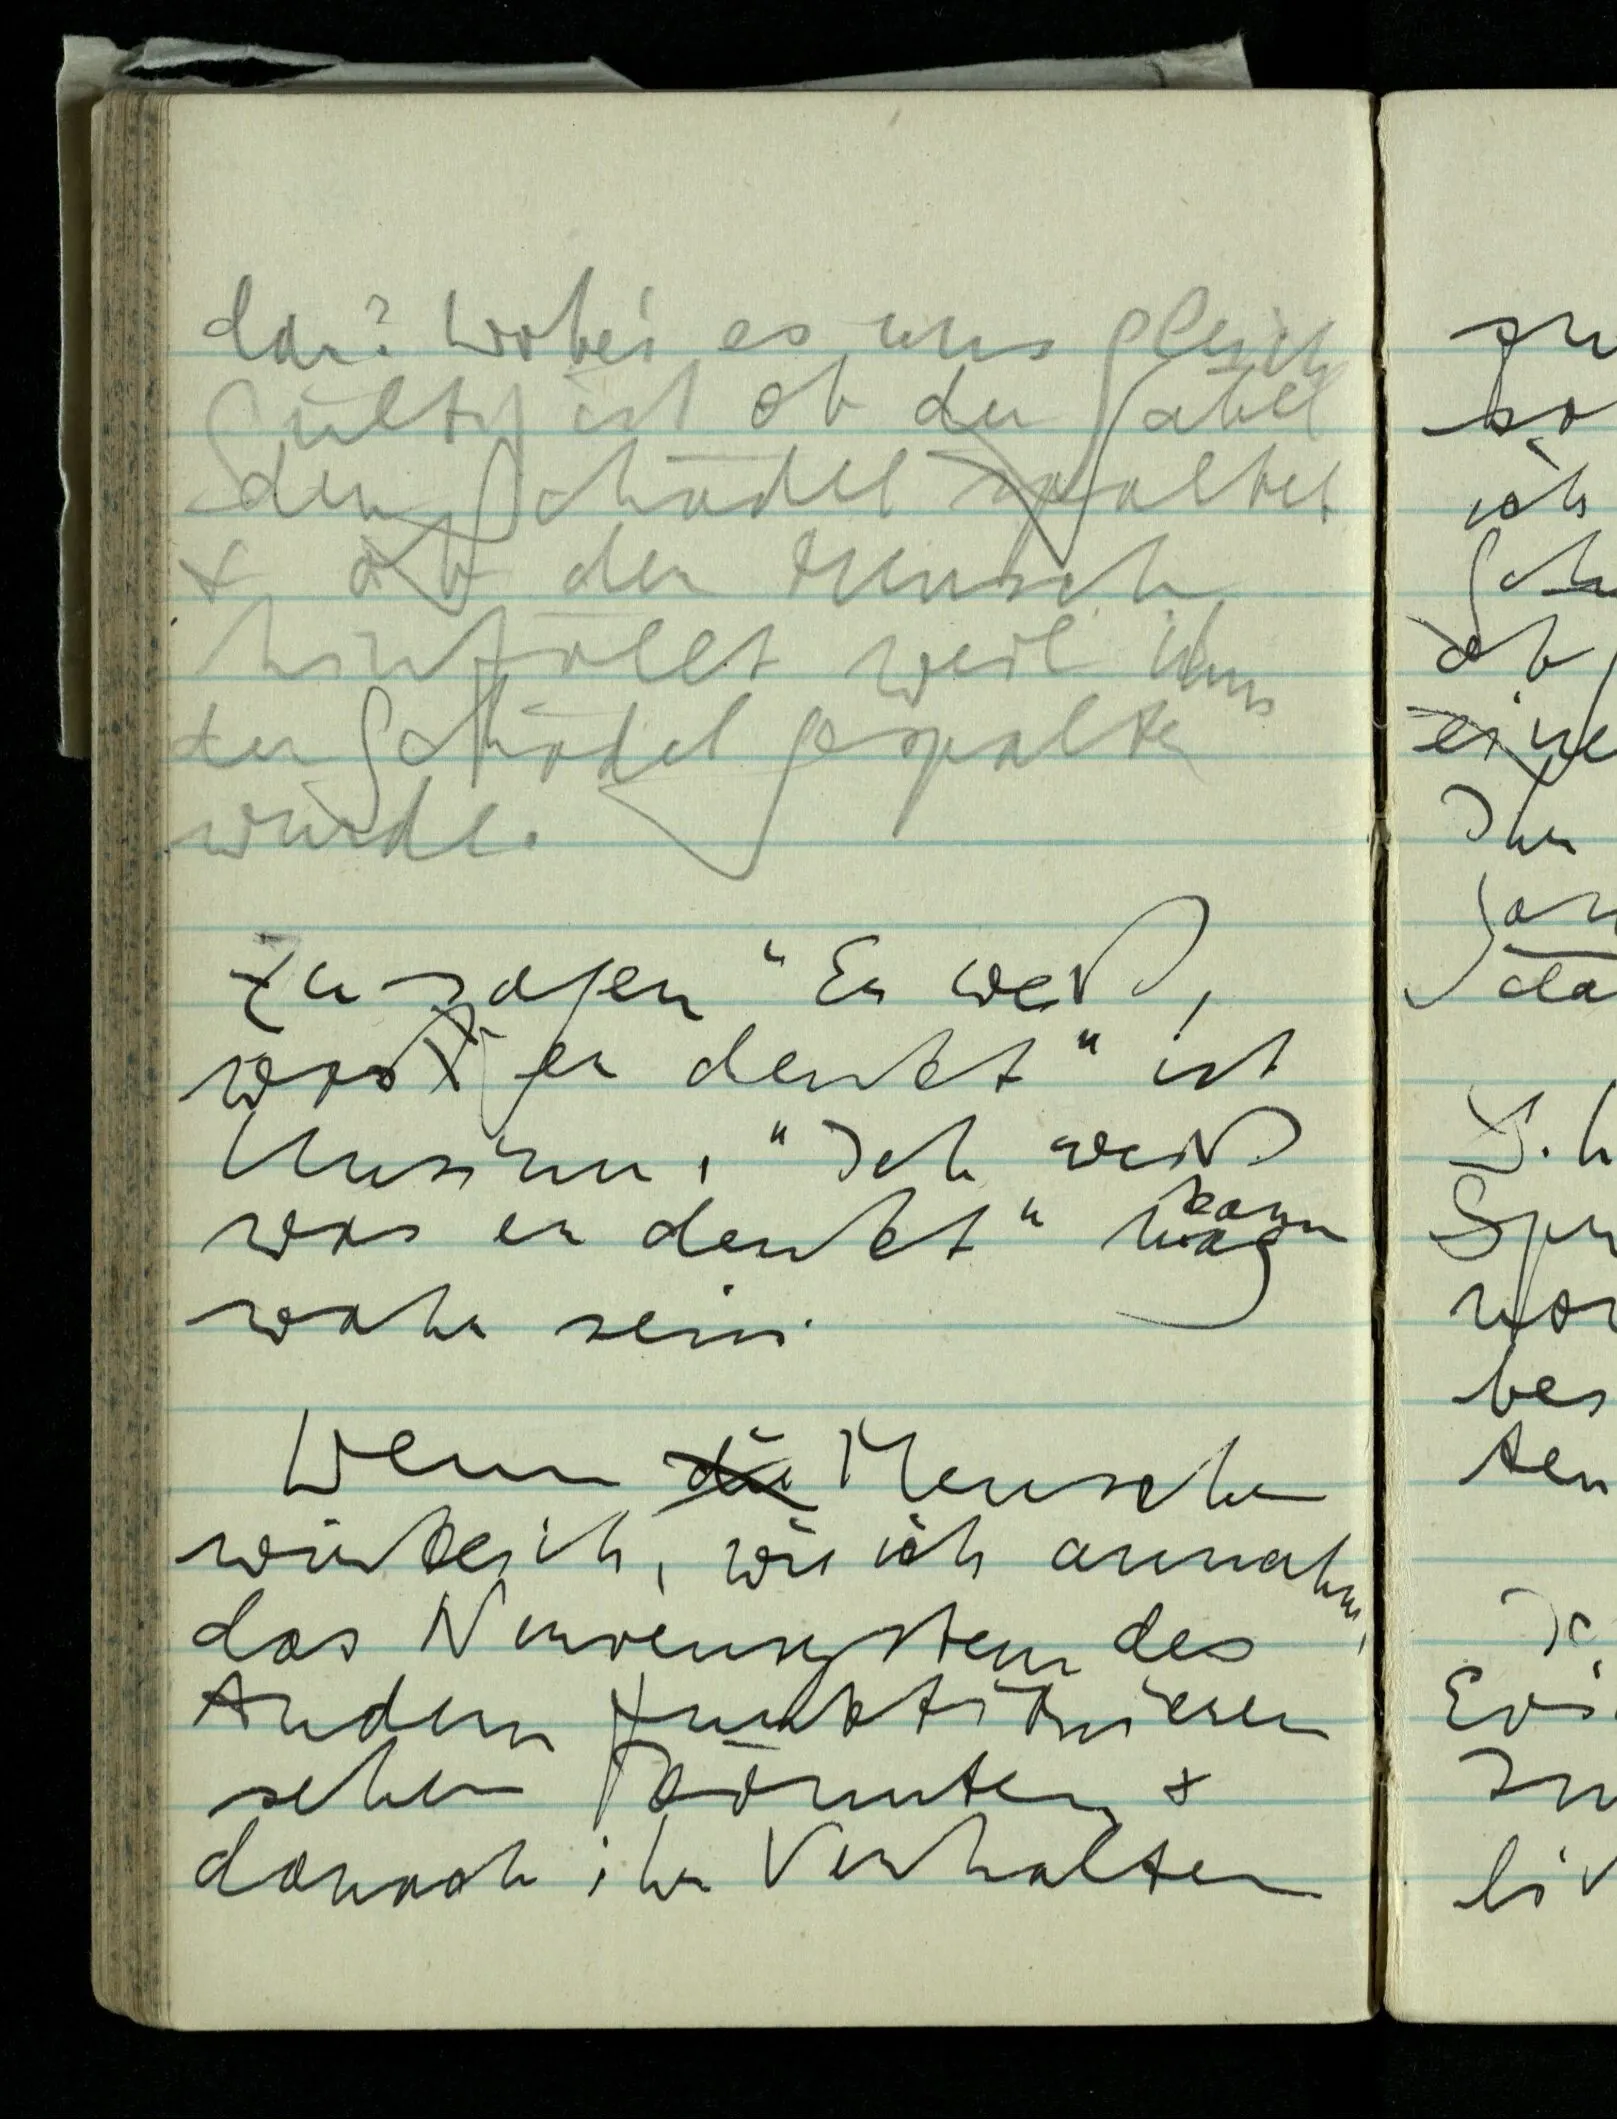 dar? Wobei es uns gleich
gültig ist ob der Säbel
den Schädel spaltet
& ob der Mensch
hinfällt weil ihm
der Schädel gespalten
wurde.
Zu sagen "Er weiß,
was er denkt" ist
Unsinn, "Ich weiß
was er denkt" mag kann
wahr sein.
Wenn die Menschen
wirklich, wie ich annahm,
das Nervensystem des
Andern funktionieren
sehen könnten &
danach ihr Verhalten
zu
so
ich
ob
eine
Ihr
da
D.h
Spr
bes
ten
Evi
li